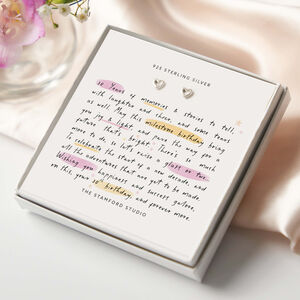 925 STERLING SILVER
10 Years of memories & stories to tell,
with laughter and shine, and some tears
as well. May this milestone birthday bring
you joy & light, and pave the way for a
future that's bright. There's so much
more to do, so let's raise a glass or two.
To celebrate the start of a new decade, and
all the adventures that are yet to be made.
Wishing you happiness and success galore,
on this your birthday, and forever more.
THE STAMFORD STUDIO